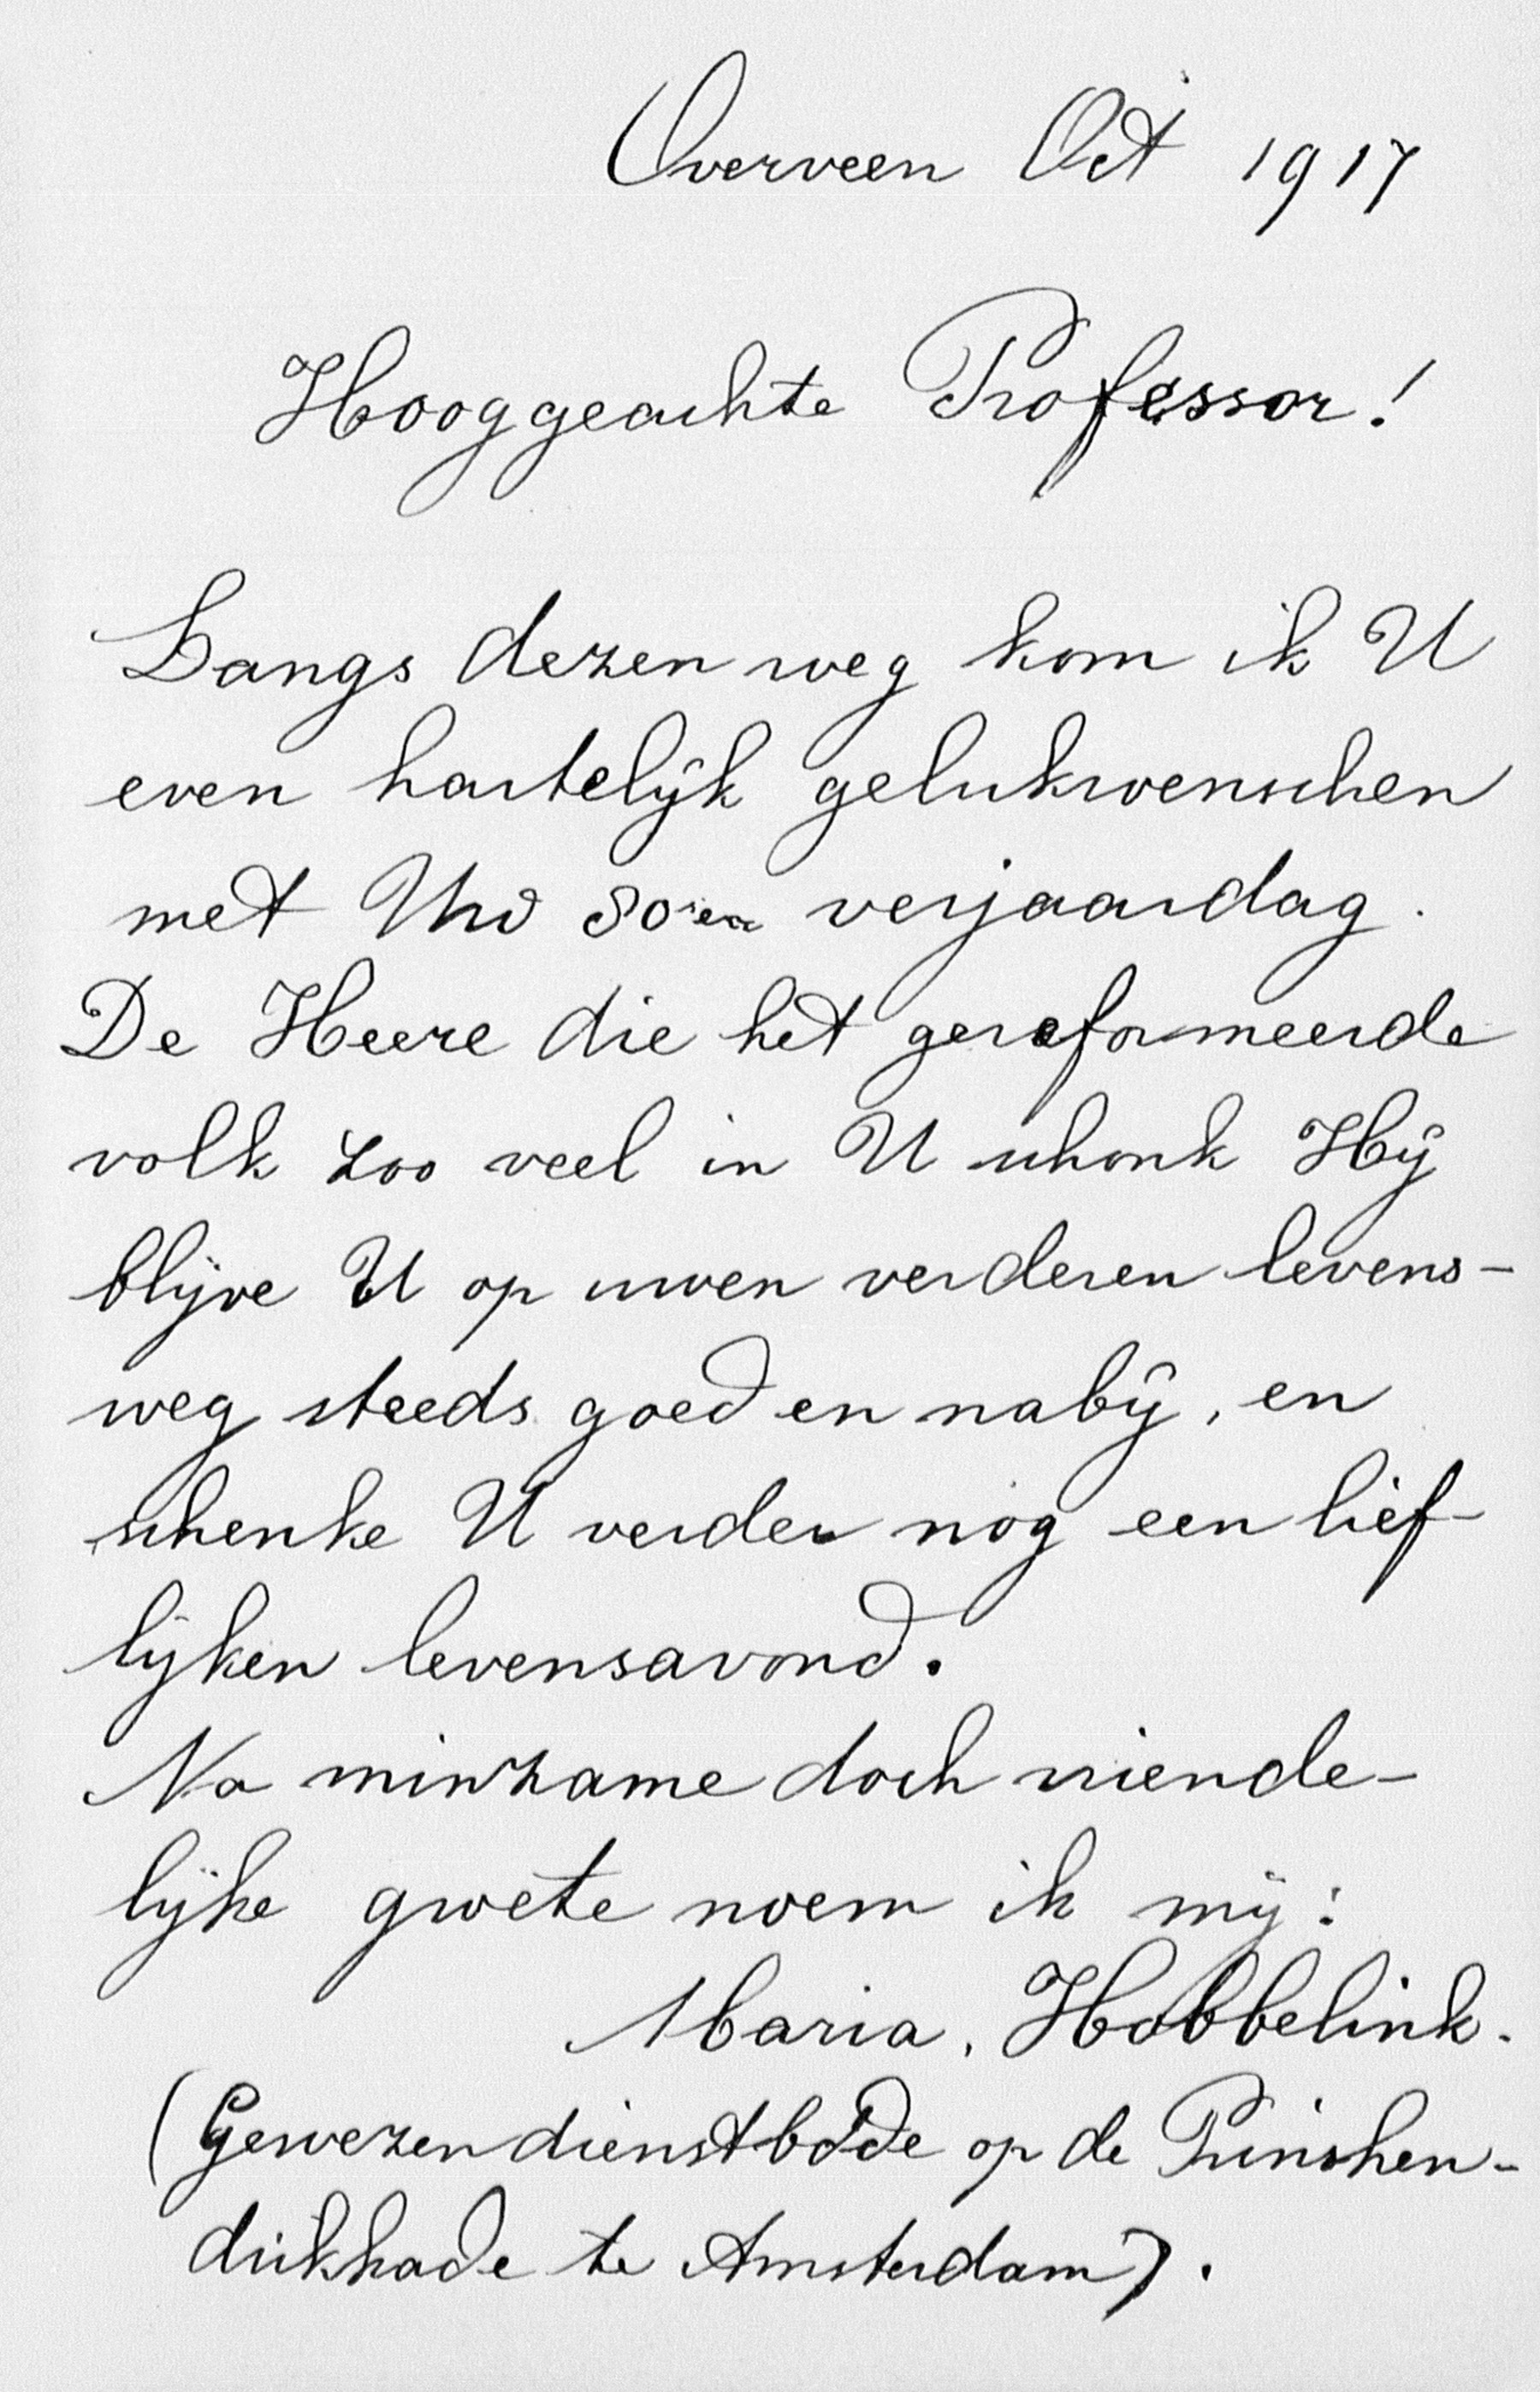 Overveen Oct 1917
Hooggeachte Professor!
Langs dezen weg kom ik U
even hartelijk gelukwenschen
met Uw 80en verjaardag.
De Heere die het gereformeerde
volk zoo veel in U schonk Hij
blijve U op uwen verderen levens-
weg steeds goed en nabij, en
schenke U verder nog een lief-
lijken levensavond.
Na minzame doch vriende-
lijke groete noem ik mij:
Maria. Hobbelink.
(Gewezen dienstbode op de Prinshen-
drikkade te Amsterdam).